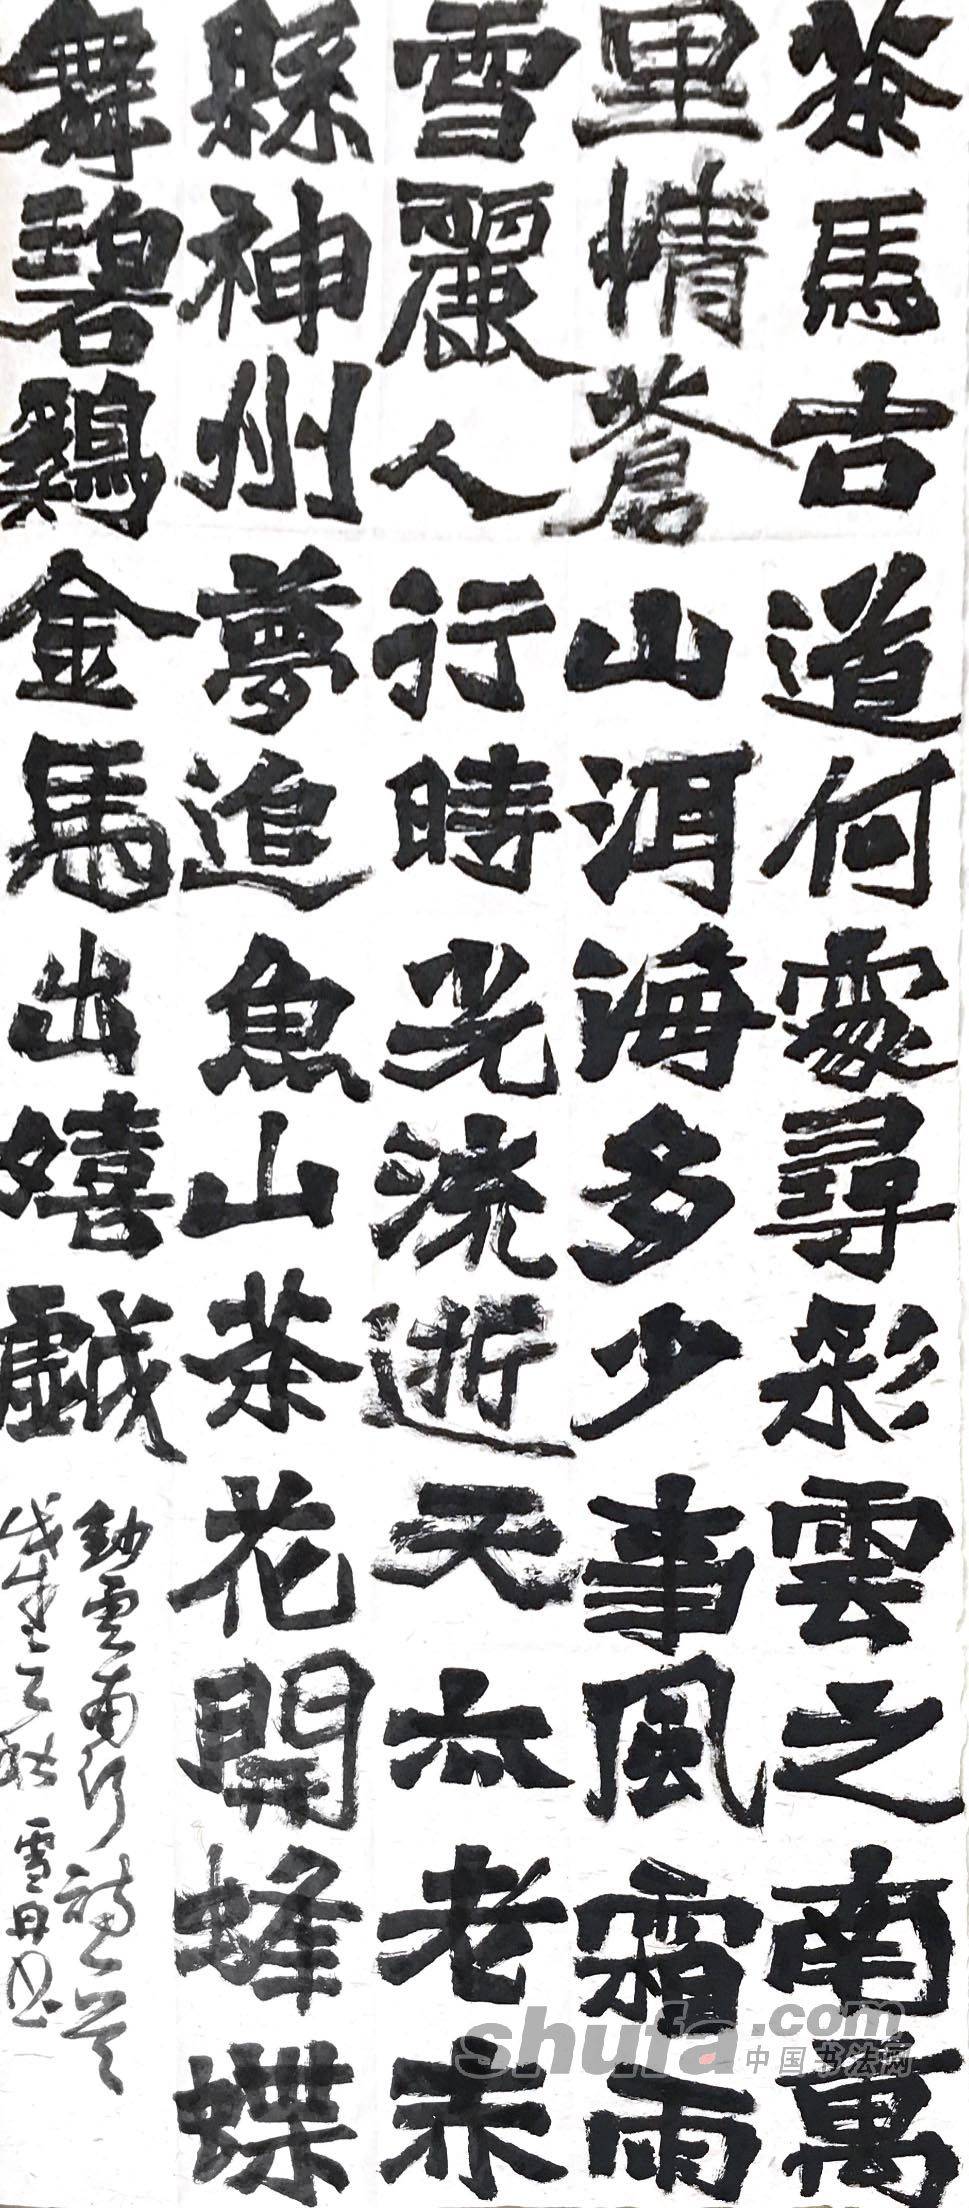 茶馬古道何處尋彩雲之南萬
里情蒼山洱海多少事風霜雨
雪麗人行時光流逝天亦老赤
縣神州夢追魚山茶花開蜂蝶
舞碧鷄金馬出嬉戲
雲南行
之秋 雪丹書
shufa.com
中国书法网